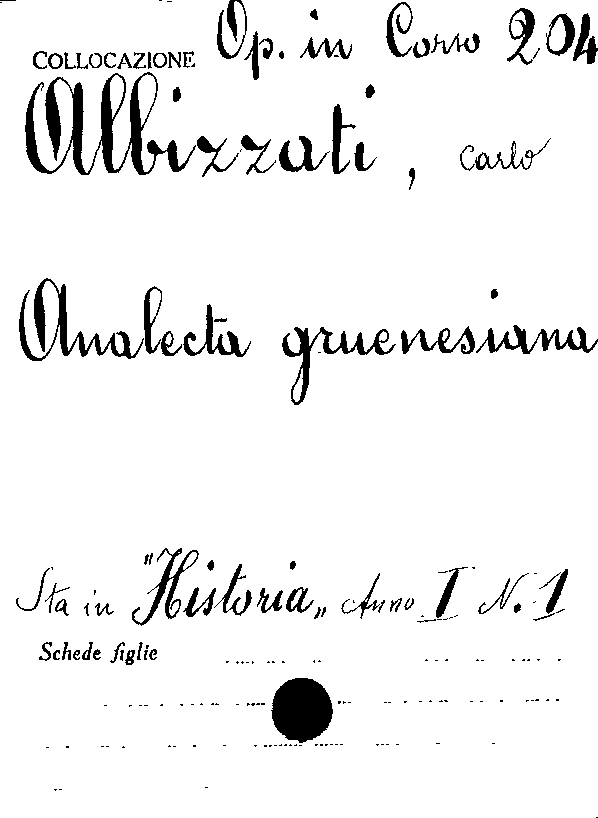 COLLOCAZIONE Op. in Corso 204
Albizzati, Carlo
Analecta gruenesiana
Sta in "Historia„ Anno I N. 1
Schede figlie